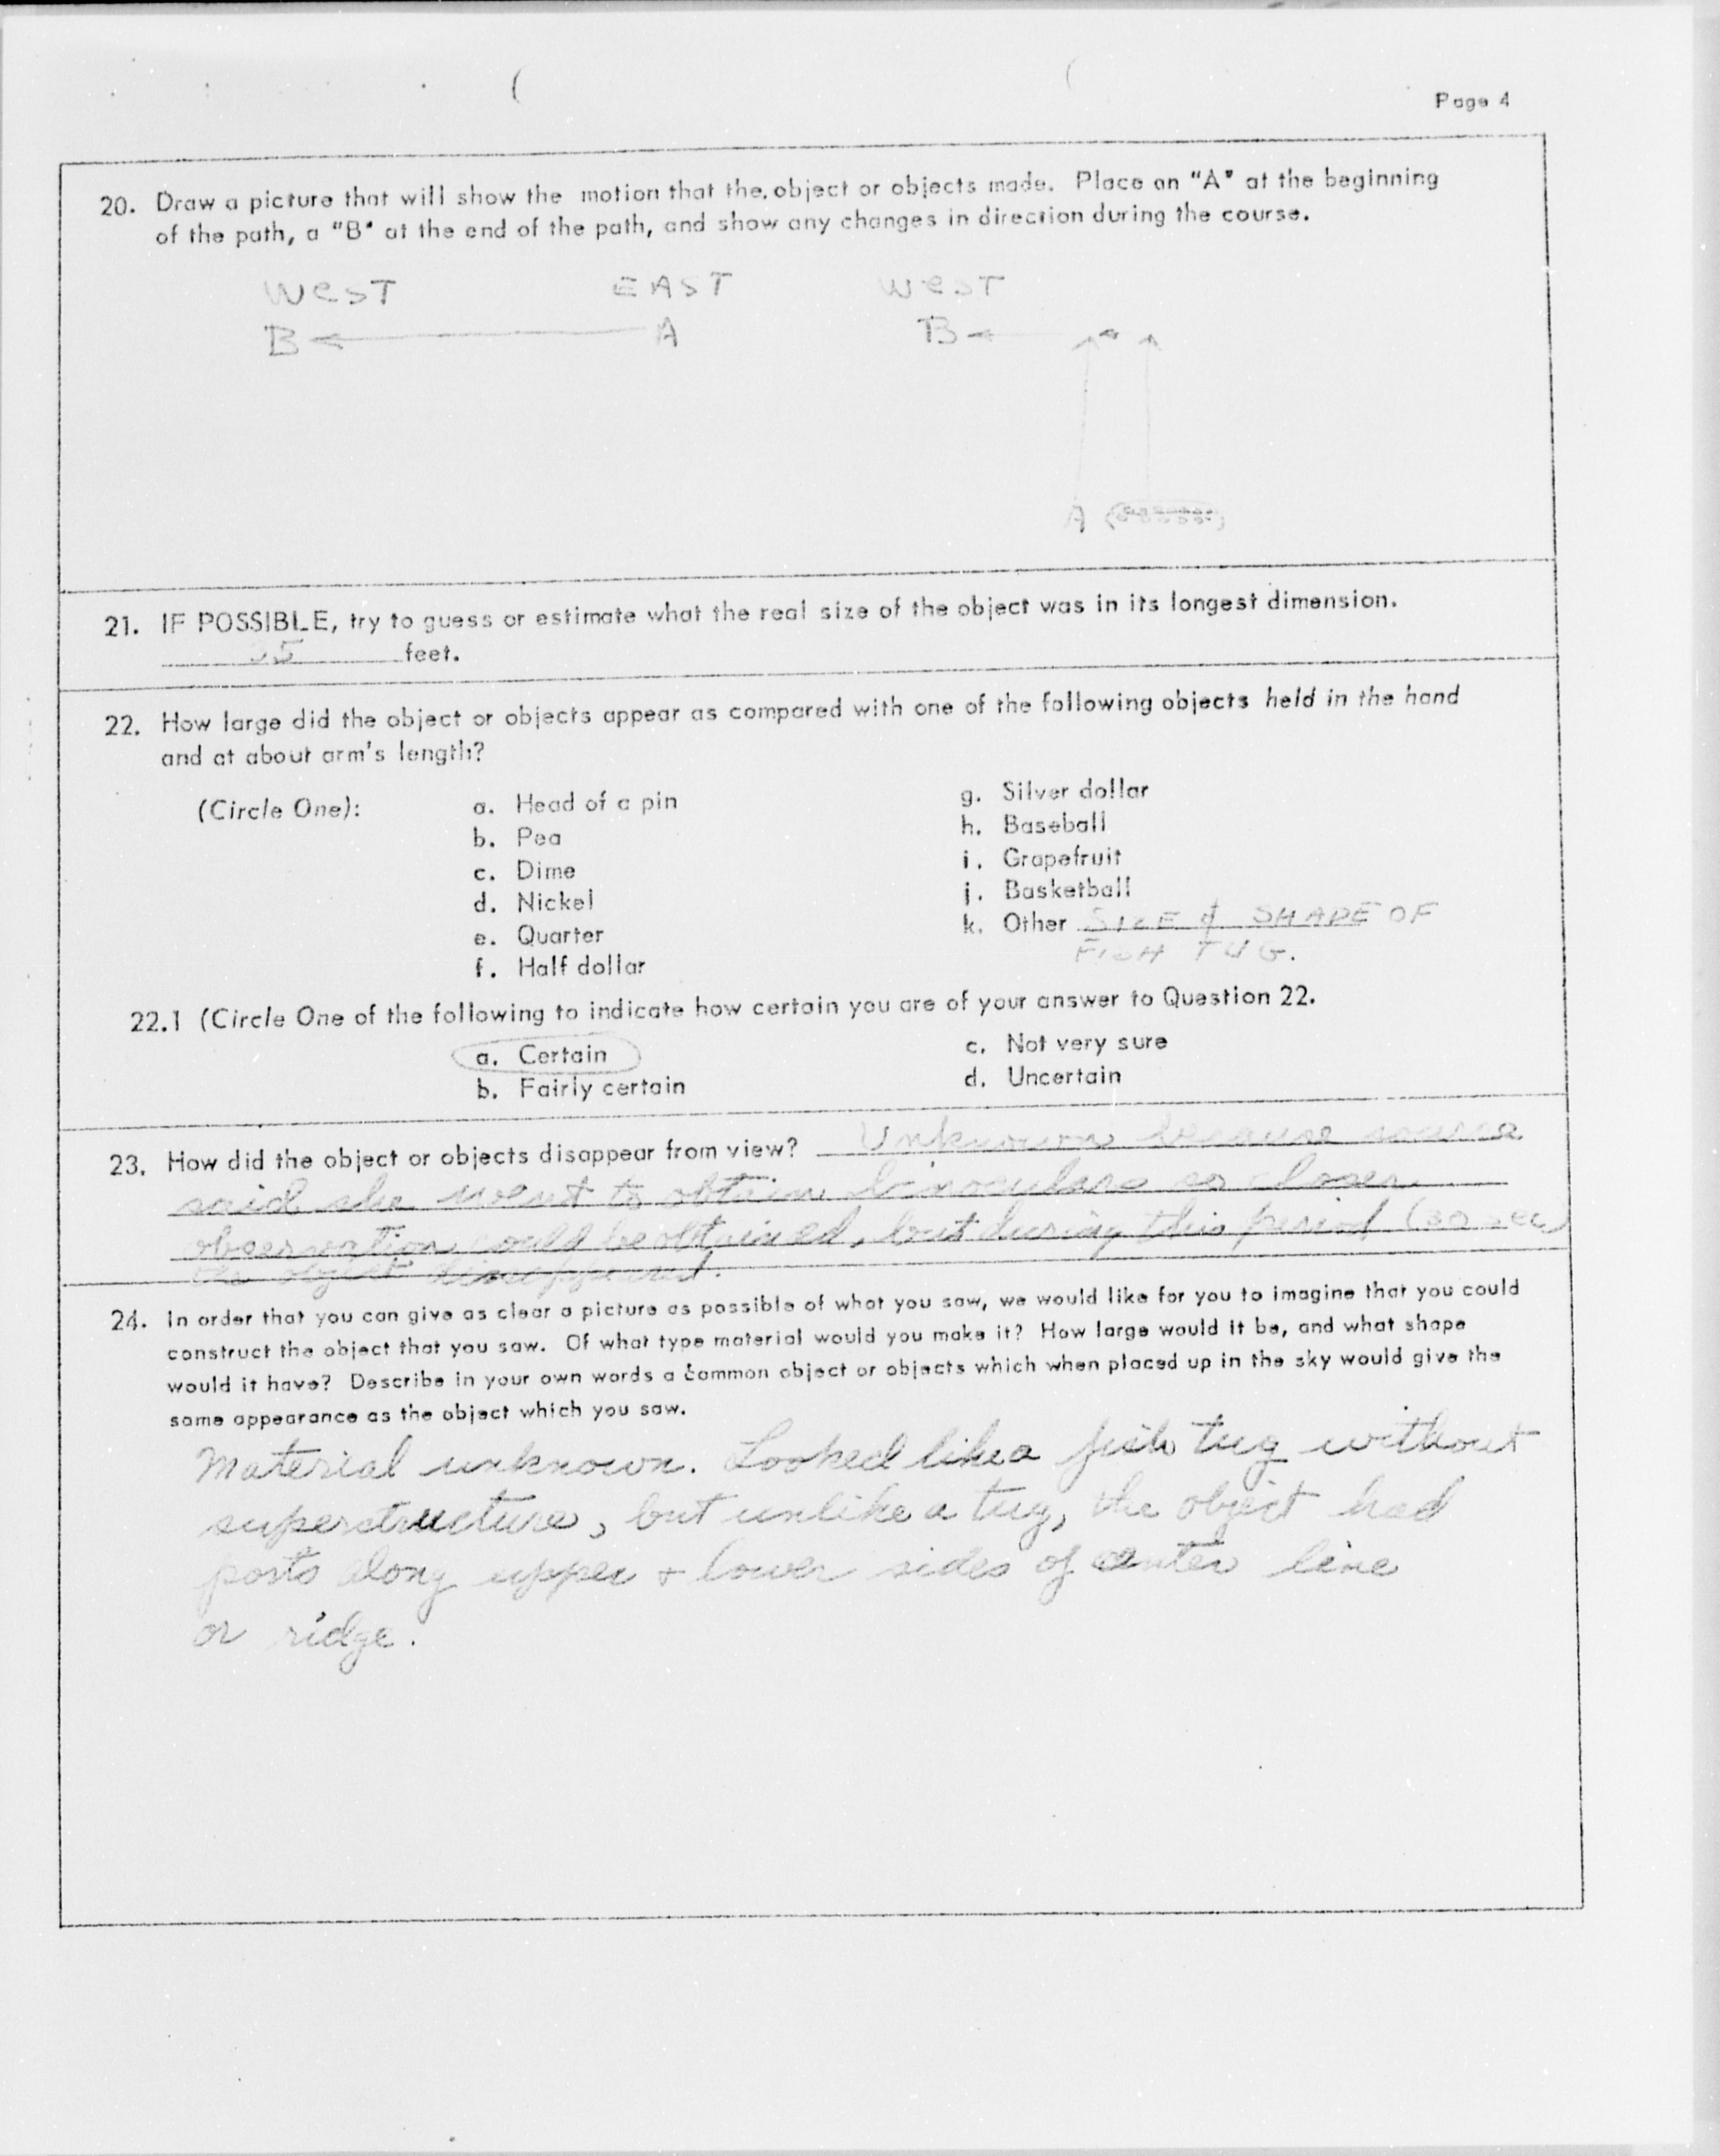 Page 4
20. Draw a picture that will show the motion that the object or objects made. Place an "A" at the beginning
of the path, a "B" at the end of the path, and show any changes in direction during the course.
WeST EAST WeST
B A B
A
21. IF POSSIBLE, try to guess or estimate what the real size of the object was in its longest dimension.
35 feet.
22. How large did the object or objects appear as compared with one of the following objects held in the hand
and at about arm's length?
(Circle One):
a. Head of a pin
b. Pea
c. Dime
d. Nickel
e. Quarter
f. Half dollar
g. Silver dollar
h. Baseball
i. Grapefruit
j. Basketball
k. Other SIZE & SHAPE OF
FISH TUG.
22.1 (Circle One of the following to indicate how certain you are of your answer to Question 22.
a. Certain
b. Fairly certain
c. Not very sure
d. Uncertain
23. How did the object or objects disappear from view? Unknown because source
said she went to obtain binoculars so closer
observation could be obtained, but during this period (30 sec)
the object disappeared.
24. In order that you can give as clear a picture as possible of what you saw, we would like for you to imagine that you could
construct the object that you saw. Of what type material would you make it? How large would it be, and what shape
would it have? Describe in your own words a common object or objects which when placed up in the sky would give the
same appearance as the object which you saw.
Material unknown. Looked like a fish tug without
superstructure, but unlike a tug, the object had
ports along upper + lower sides of center line
or ridge.